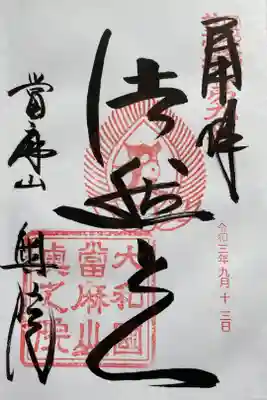 奉拝
令和三年九月十三日
法然上人
當麻山
奥院
大和國
當麻山
奥之院